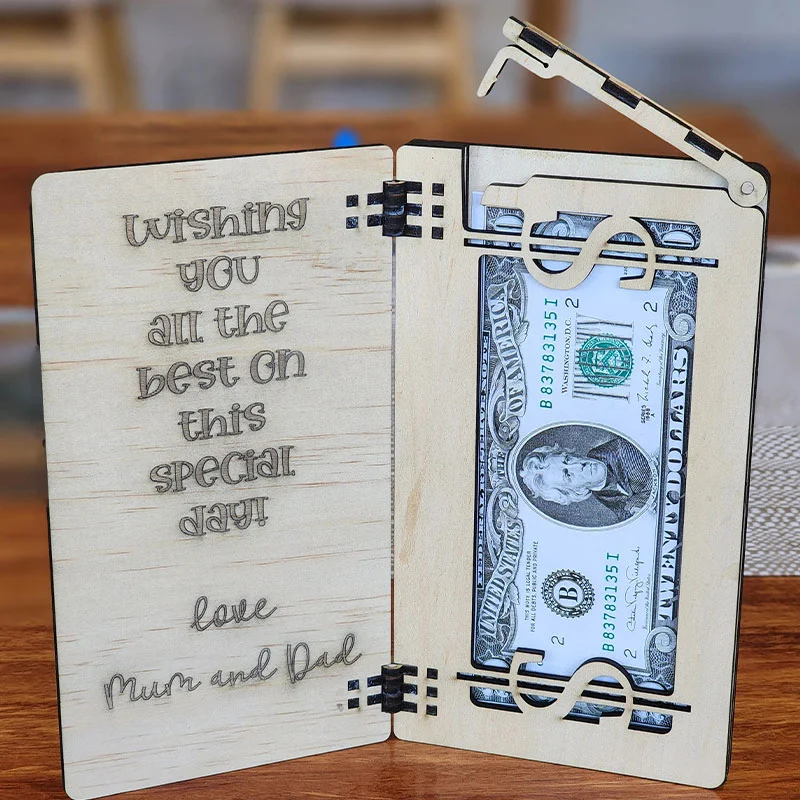 Wishing
you
all the
best on
this
special
day!
love
Mum and Dad
FEDERAL RESERVE NOTE
THE UNITED STATES OF AMERICA
THIS NOTE IS LEGAL TENDER
FOR ALL DEBTS, PUBLIC AND PRIVATE
B 83783135 I
2
WASHINGTON, D.C.
2
B
2
B 83783135 I
2
SERIES
TWENTY DOLLARS
$
$